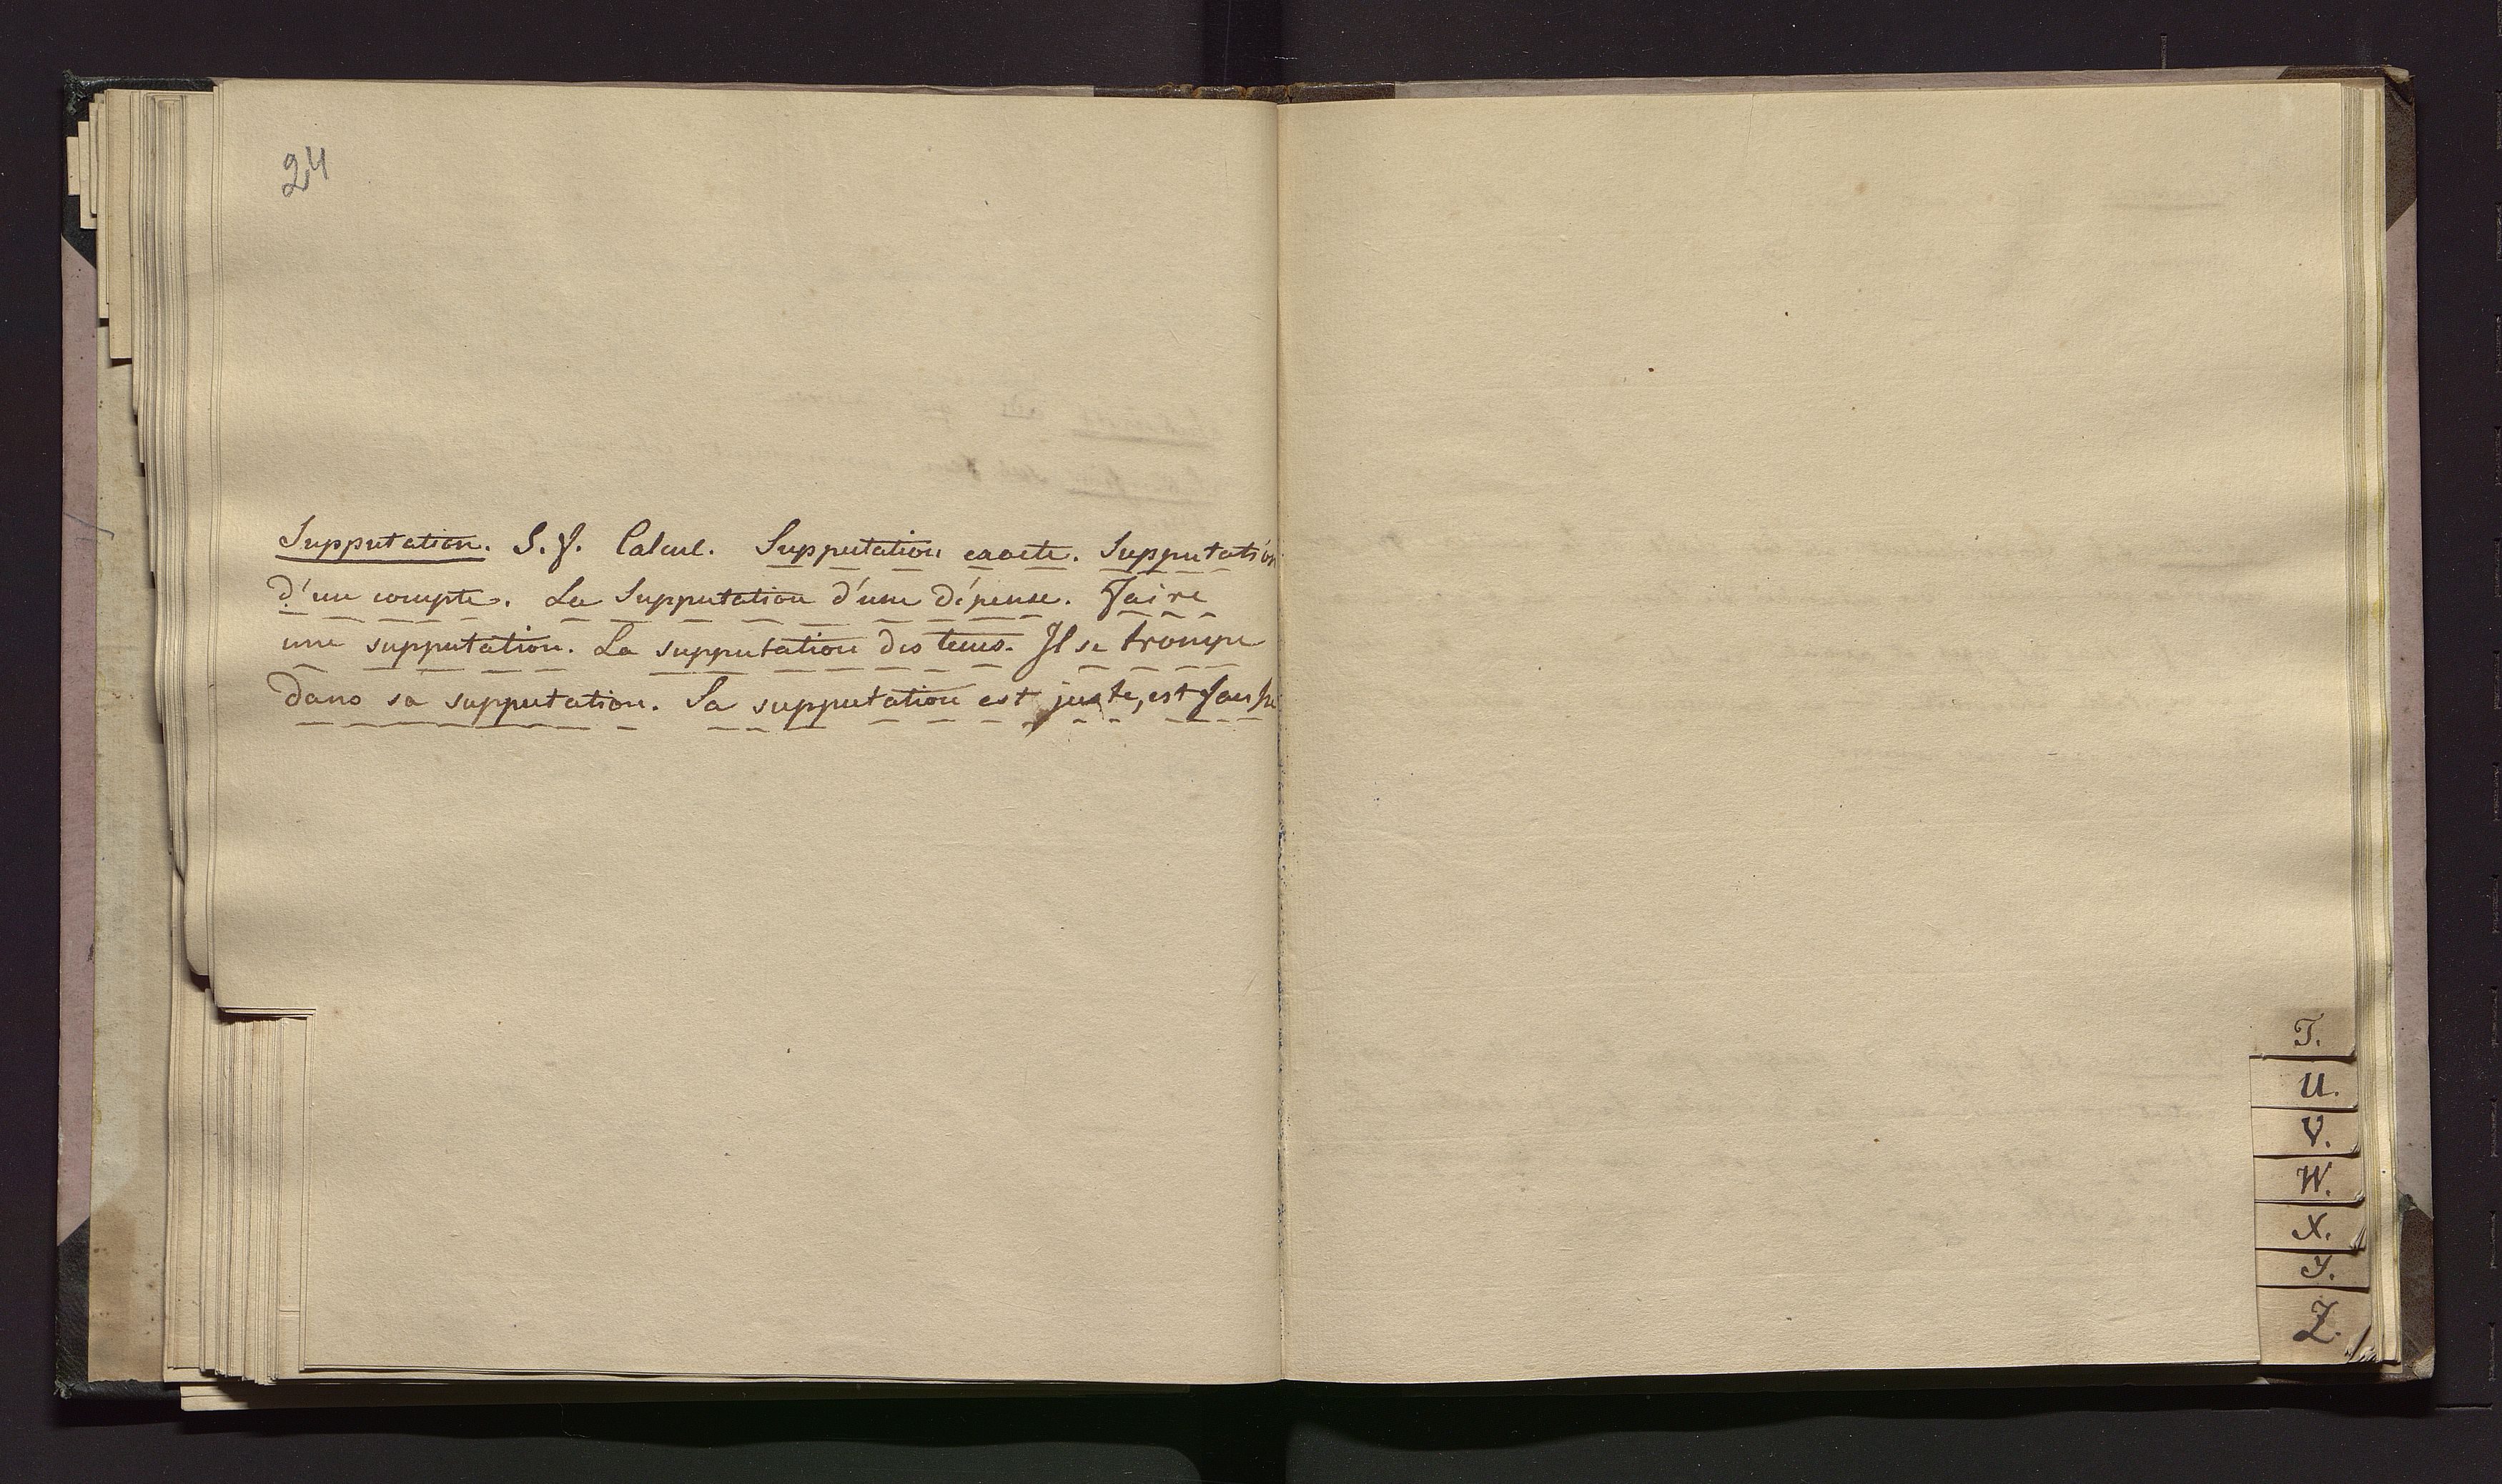 24
Supputation. S. f. Calcul. Supputation exacte. Supputation
d'un compte. La Supputation d'une dépense. Faire
une supputation. La supputation des tems. Il se trompe
dans sa supputation. Sa supputation est juste, est fausse
T.
U.
V.
W.
X.
Y.
Z.